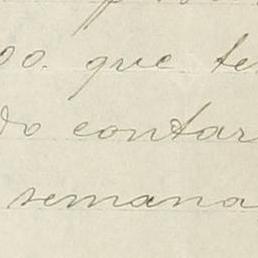 que te
do contar
semana